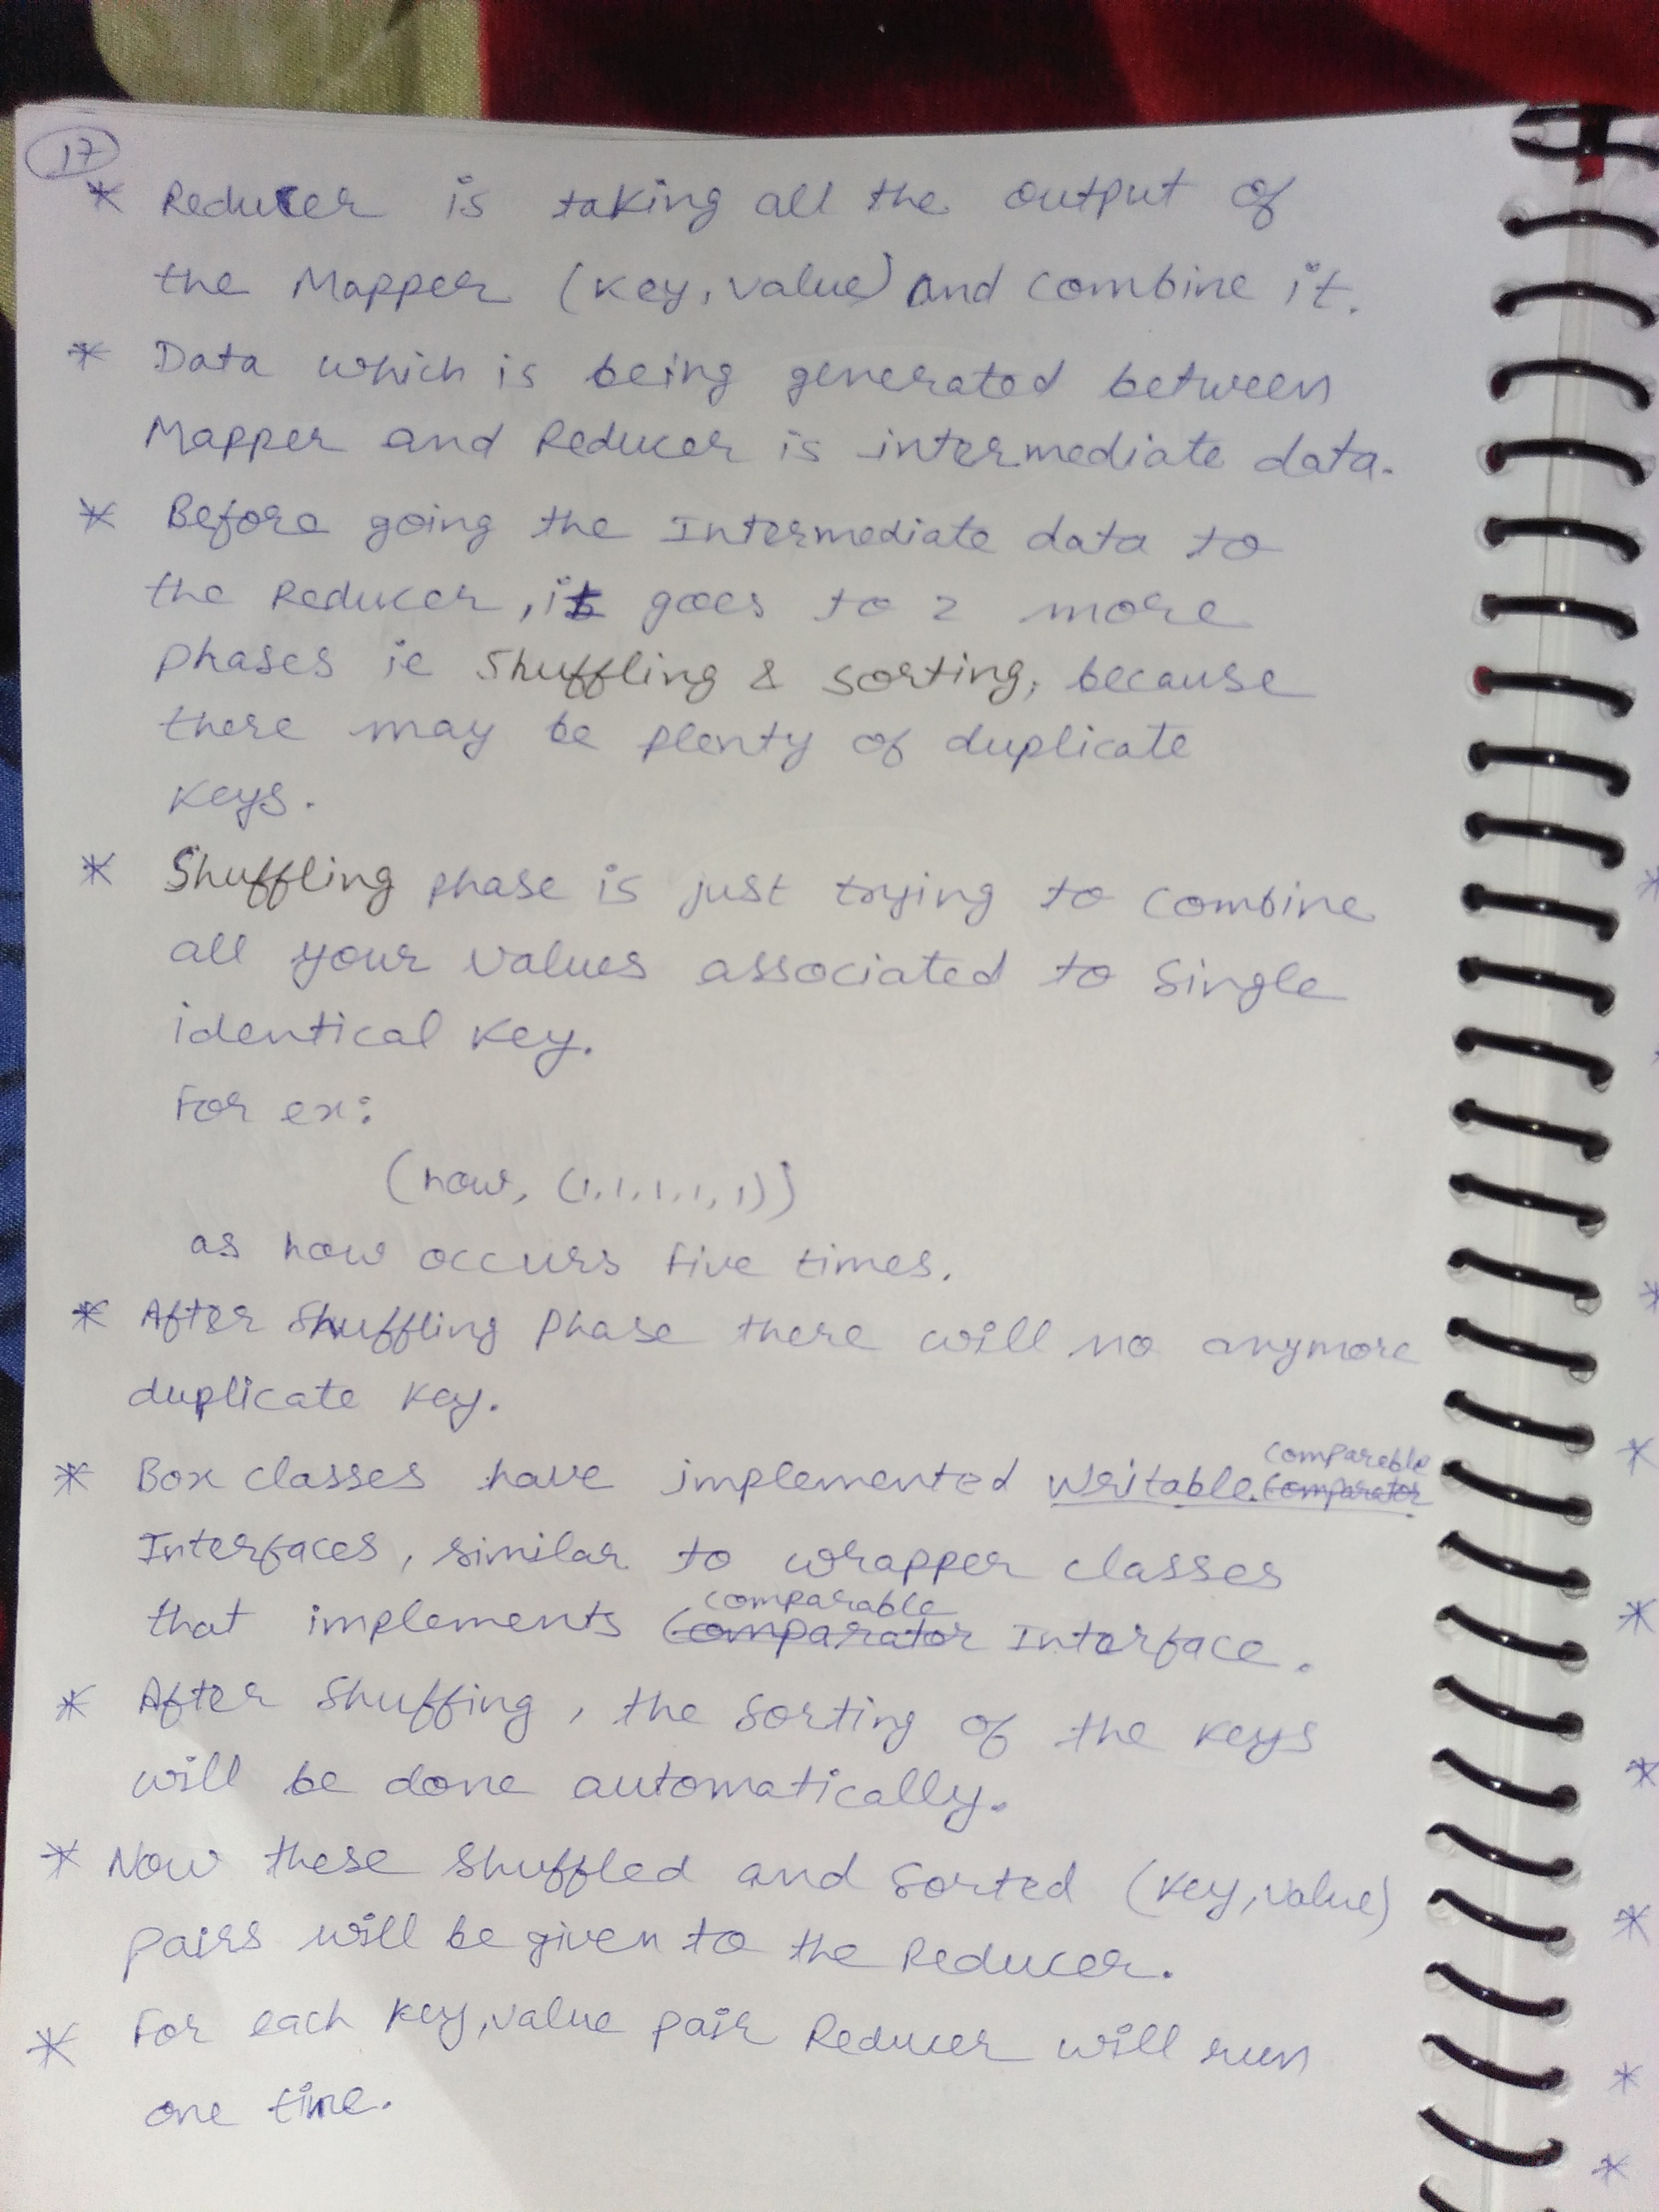 17
* Reducer is taking all the output of
the Mapper (key, value) and combine it.
* Data which is being generated between
Mapper and Reducer is intermediate data.
* Before going the Intermediate data to
the Reducer, it goes to 2 more
phases ie Shuffling & sorting, because
there may be plenty of duplicate
keys.
* Shuffling phase is just trying to combine
all your values associated to single
identical key.
For ex:
(how, (1,1,1,1,1))
as how occurs five times.
* After Shuffling Phase there will no anymore
duplicate key.
comparable
* Box classes have implemented Writable Comparator
Interfaces, similar to wrapper classes
comparable
that implements Comparator Interface.
* After Shuffing, the sorting of the keys
will be done automatically.
* Now these shuffled and sorted (key, value)
pairs will be given to the Reducer.
* For each key, value pair Reducer will run
one time.